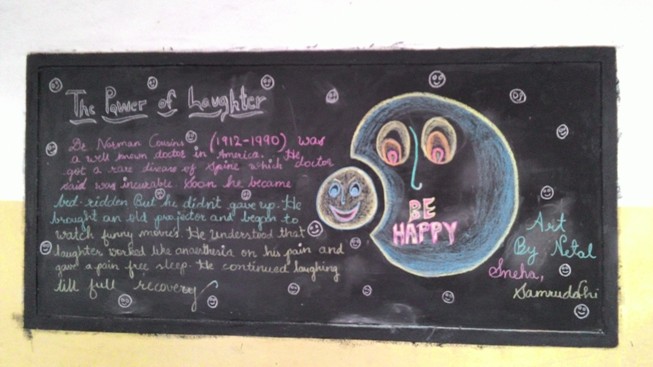 The Power of Laughter
Dr Norman Cousins (1912-1990) was
a well known doctor in America. He
got a rare disease of spine which doctor
said was incurable. Soon he became
bed-ridden But he didn't gave up. He
brought an old projector and began to
watch funny movies. He understood that
laughter worked like anaesthesia on his pain and
gave a pain free sleep. He continued laughing
till full recovery
BE
HAPPY
Art
By: Netal
Sneha,
Samruddhi